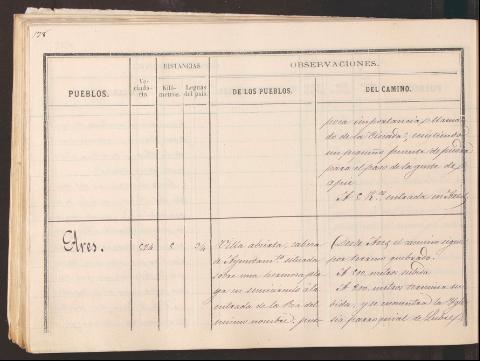 178
PUEBLOS.
Ve-
cinda-
rio.
DISTANCIAS.
Kiló-
metros.
Leguas
del país.
OBSERVACIONES.
DE LOS PUEBLOS.
DEL CAMINO.
poca importancia, llama-
do de la existiendo
un pequeño puente de piedra
para el paso de la gente de
á pie.
A 2 K.os entrada en Ares.
Ares.
2
3/4
Villa abierta, cabeza
de Ayuntam.to situada
sobre una hermosa pla-
ya en semicirculo á la
entrada de la Ria del
mismo nombre;
Desde Ares el camino sigue
por terreno quebrado.
A 200 metros subida.
A 200 metros termina su-
bida, y se encuentra la Igle-
sia parroquial de